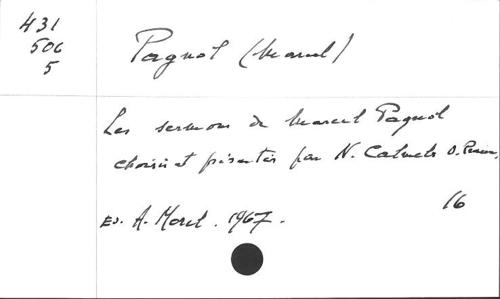 431
506
5
Pagnol (Marcel)
Les sermons de Marcel Pagnol
choisis et présentés par N. Calmels O. Prem.
16
Ed. A. Morel. 1967.